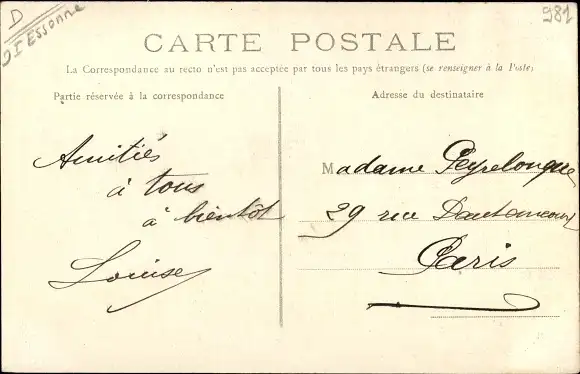 D
91 ESSONNE
981
CARTE POSTALE
La Correspondance au recto n'est pas acceptée par tous les pays étrangers (se renseigner à la Poste)
Partie réservée à la correspondance
Amitiés
à tous
à bientôt
Louise
Adresse du destinataire
Madame Peyrelongue
29 rue Dautancourt
Paris